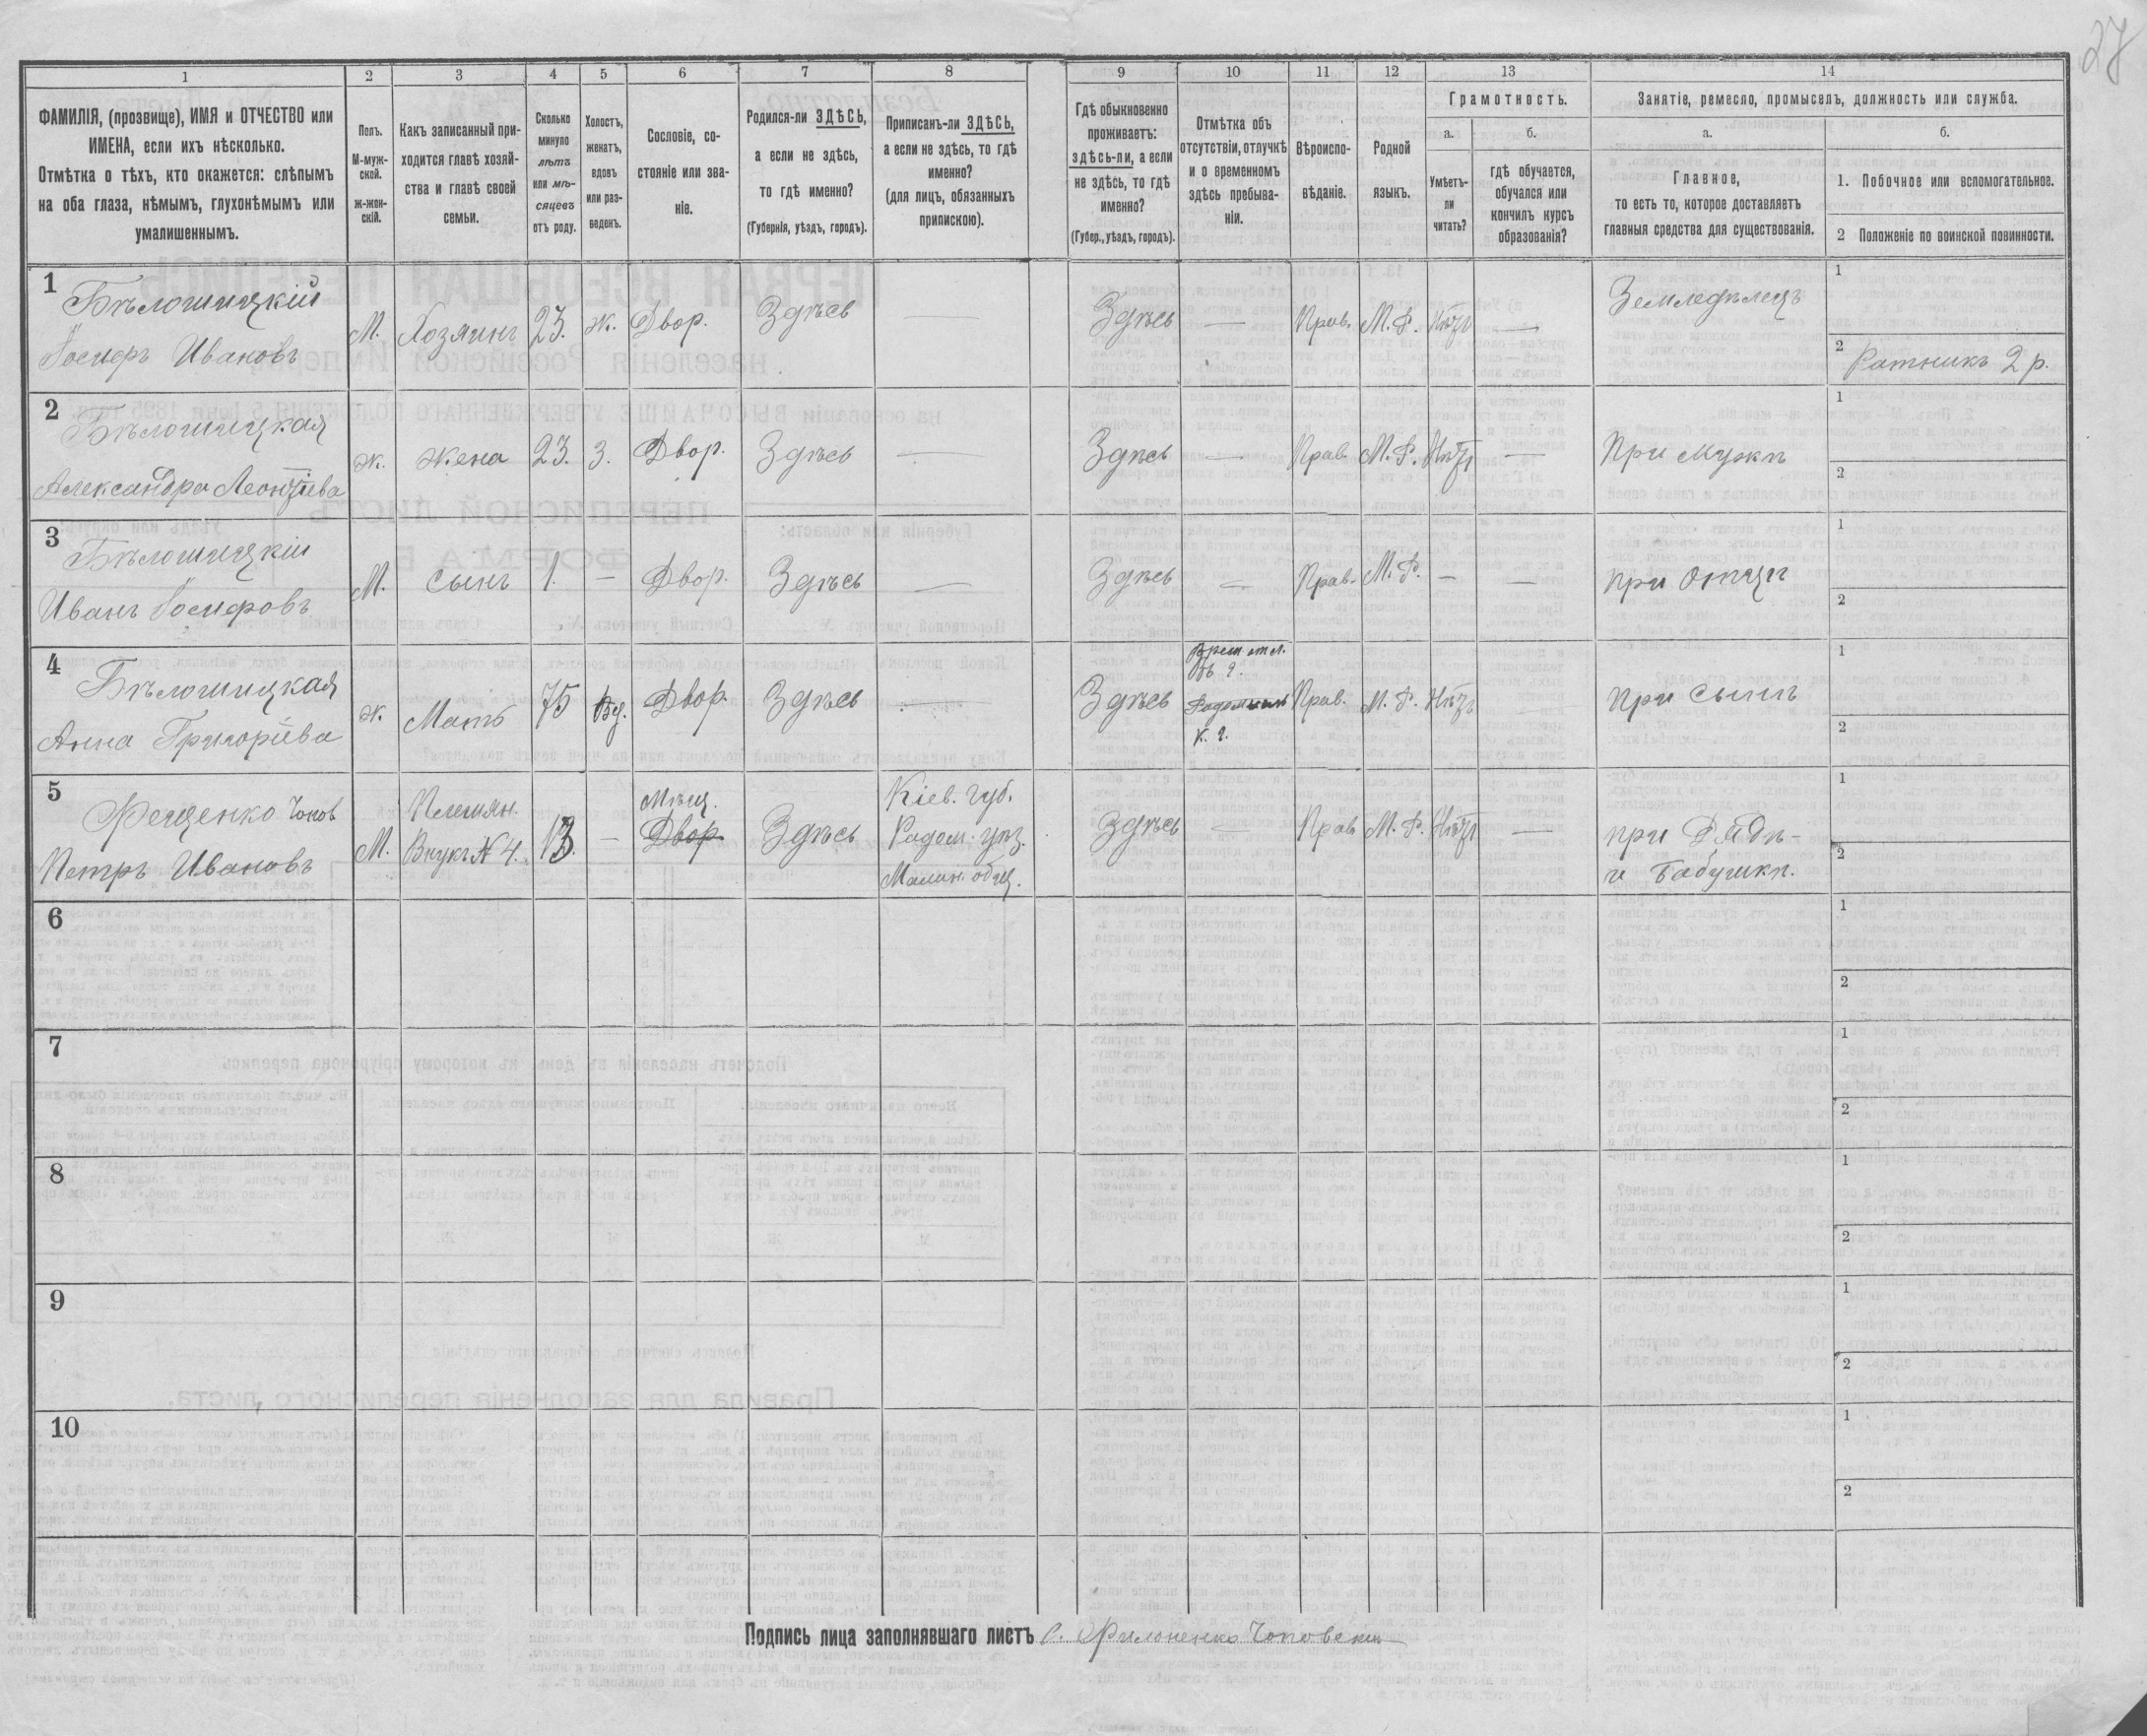 27
1 2 3 4 5 6 7 8 9 10 11 12 13 14
ФАМИЛІЯ, (прозвище), ИМЯ и ОТЧЕСТВО или
ИМЕНА, если ихъ нѣсколько.
Отмѣтка о тѣхъ, кто окажется: слѣпымъ
на оба глаза, нѣмымъ, глухонѣмымъ или
умалишеннымъ.
Полъ.
М-муж-
ской.
ж-жен-
скій.
Какъ записанный при-
ходится главѣ хозяй-
ства и главѣ своей
семьи.
Сколько
минуло
лѣтъ
или мѣ-
сяцевъ
отъ роду.
Холостъ,
женатъ,
вдовъ
или раз-
веденъ.
Сословіе, со-
стояніе или зва-
ніе.
Родился-ли ЗДѢСЬ,
а если не здѣсь,
то гдѣ именно?
(Губернія, уѣздъ, городъ).
Приписанъ-ли ЗДѢСЬ,
а если не здѣсь, то гдѣ
именно?
(для лицъ, обязанныхъ
припискою).
Гдѣ обыкновенно
проживаетъ:
здѣсь-ли, а если
не здѣсь, то гдѣ
именно?
(Губер., уѣздъ, городъ).
Отмѣтка объ
отсутствіи, отлучкѣ
и о временномъ
здѣсь пребыва-
ніи.
Вѣроиспо-
вѣданіе.
Родной
языкъ.
Грамотность.
а.
Умѣетъ-
ли
читать?
б.
гдѣ обучается,
обучался или
кончилъ курсъ
образованія?
Занятіе, ремесло, промыселъ, должность или служба.
а.
Главное,
то есть то, которое доставляетъ
главныя средства для существованія.
б.
1. Побочное или вспомогательное.
2 Положеніе по воинской повинности.
1
Бѣлошицкій
Іосифъ Ивановъ
М. Хозяинъ 23. ж. Двор. Здѣсь — Здѣсь — Прав. М. Р. Нѣтъ —
Земледѣлецъ
1
2 Ратникъ 2 р.
2
Бѣлошицкая
Александра Леонтіева
ж. жена 23. З. Двор. Здѣсь — Здѣсь — Прав. М. Р. Нѣтъ —
При мужѣ
1
2
3
Бѣлошицкій
Иванъ Іосифовъ
М. сынъ 1. — Двор. Здѣсь — Здѣсь — Прав. М. Р. — —
при Отцѣ
1
2
4
Бѣлошицкая
Анна Григоріева
ж. Мать 75 Вд. Двор. Здѣсь — Здѣсь
Прав. М. Р. Нѣтъ —
при сынѣ
1
2
5
Фещенко Чопов
Петръ Ивановъ
М.
Племян.
Внукъ № 4.
13. —
Мѣщ.
Двор.
Здѣсь
Кіев. губ.
Радом. уѣз.
Малин. общ.
Здѣсь — Прав М. Р. Нѣтъ —
при Дядѣ-
и Бабушкѣ.
1
2
6
1
2
7
1
2
8
1
2
9
1
2
10
1
2
Подпись лица заполнявшаго листъ